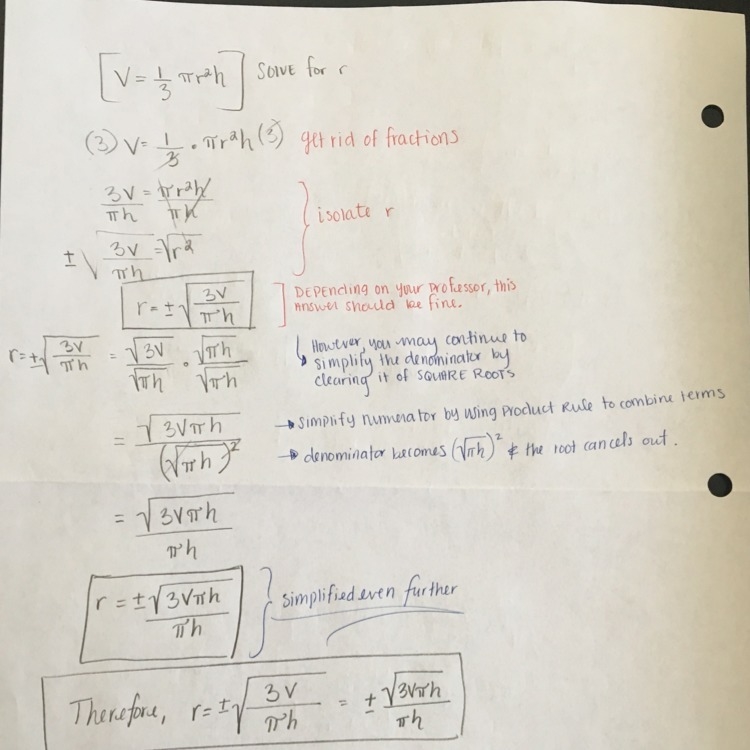 [V = 1/3 πr²h] SOLVE for r
(3) V = 1/3 • πr²h (3) get rid of fractions
3V/πh = πr²h/πh
± √(3V/πh) = √r²
} isolate r
r = ± √(3V/πh)
] DEPENDING on your professor, this
answer should be fine.
r = ± √(3V/πh) = √3V/√πh • √πh/√πh
However, you may continue to
simplify the denominator by
clearing it of SQUARE ROOTS
= √3Vπh/(√πh)²
→ simplify numerator by using Product Rule to combine terms
→ denominator becomes (√πh)² & the root cancels out.
= √3Vπh/πh
r = ± √3Vπh/πh } simplified even further
Therefore, r = ± √(3V/πh) = ± √3Vπh/πh